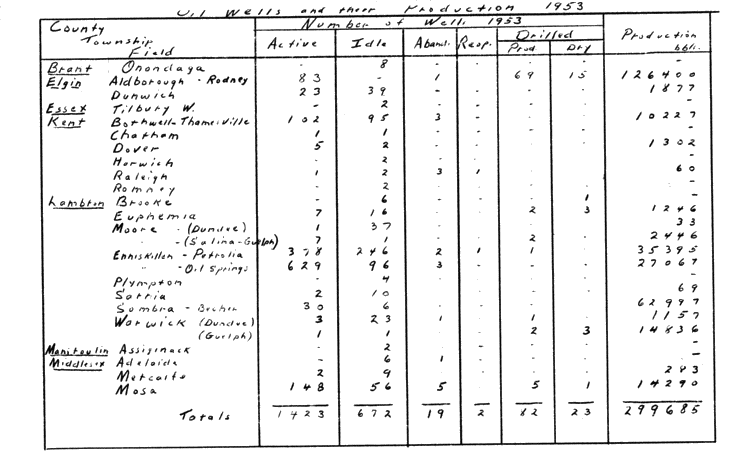 Oil Wells and their Production 1953
County Township Field Number of Wells 1953 Production bbls.
Active Idle Aband. Reop. Drilled Prod. Dry
Brant Onondaga - 8 - - - - -
Elgin Aldborough - Rodney 83 - 1 - 69 15 126400
Dunwich 23 39 - - - - 1877
Essex Tilbury W. - 2 - - - - -
Kent Bothwell-Thamesville 102 95 3 - - - 10227
Chatham 1 1 - - - - -
Dover 5 2 - - - - 1302
Harwich - 2 - - - - -
Raleigh 1 2 3 1 - - 60
Romney - 2 - - - - -
Lambton Brooke - 6 - - - 1 -
Euphemia 7 16 - - 2 3 1246
Moore - (Dundee) 1 37 - - - - 33
" - (Salina-Guelph) 7 1 - - 2 - 2446
Enniskillen - Petrolia 378 246 2 1 1 - 35395
" - Oil Springs 629 96 3 - - - 27067
Plympton - 4 - - - - -
Sarnia 2 10 - - - - 69
Sombra - Becher 30 6 - - - - 62997
Warwick (Dundee) 3 23 1 - 1 - 1157
(Guelph) 1 1 - - 2 3 14836
Manitoulin Assiginack - 2 - - - - -
Middlesex Adelaide - 6 1 - - - -
Metcalfe 2 9 - - - - 283
Mosa 148 56 5 - 5 1 14290
Totals 1423 672 19 2 82 23 299685